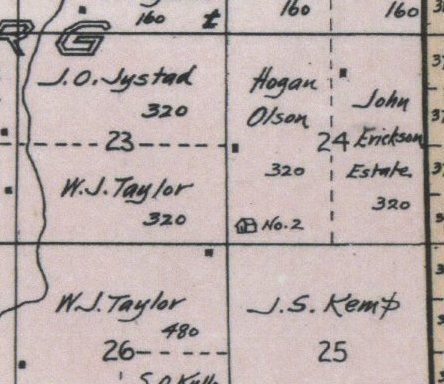 160
t
160
160
R G
J.O. Jystad
320
23
W.J. Taylor
320
Hogan
Olson
320
No. 2
24
John
Erickson
Estate
320
W.J. Taylor
480
26
J.S. Kemp
25